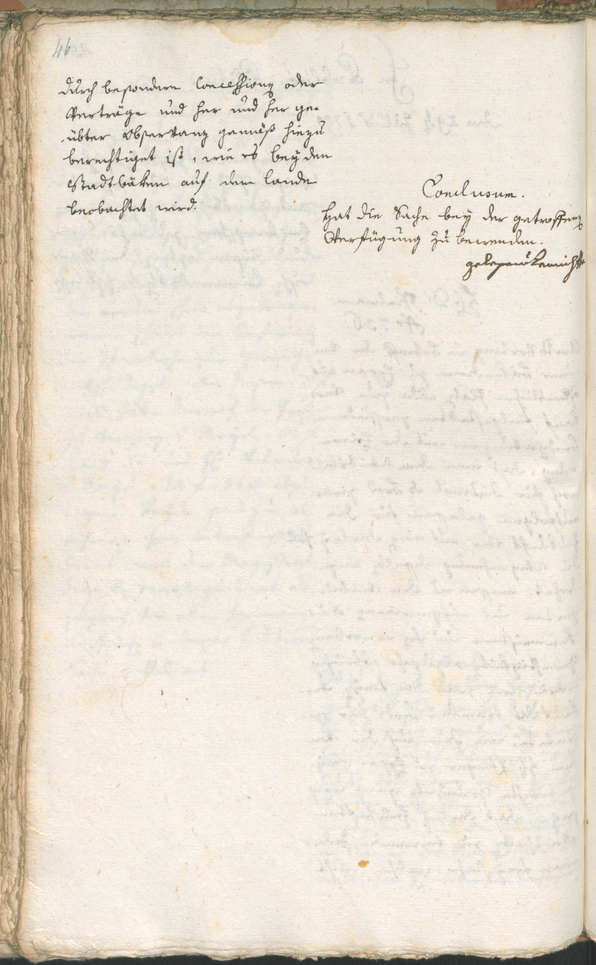 46
durch besondere Concessiones oder
Verträge und her und her ge-
übter Observanz gemäß hiezu
berechtiget ist, wie es bey den
Stadtbäken auf dem Lande
beobachtet wird.
Conclusum.
Hat die Sache bey der getroffenen
Verfügung zu bewenden.